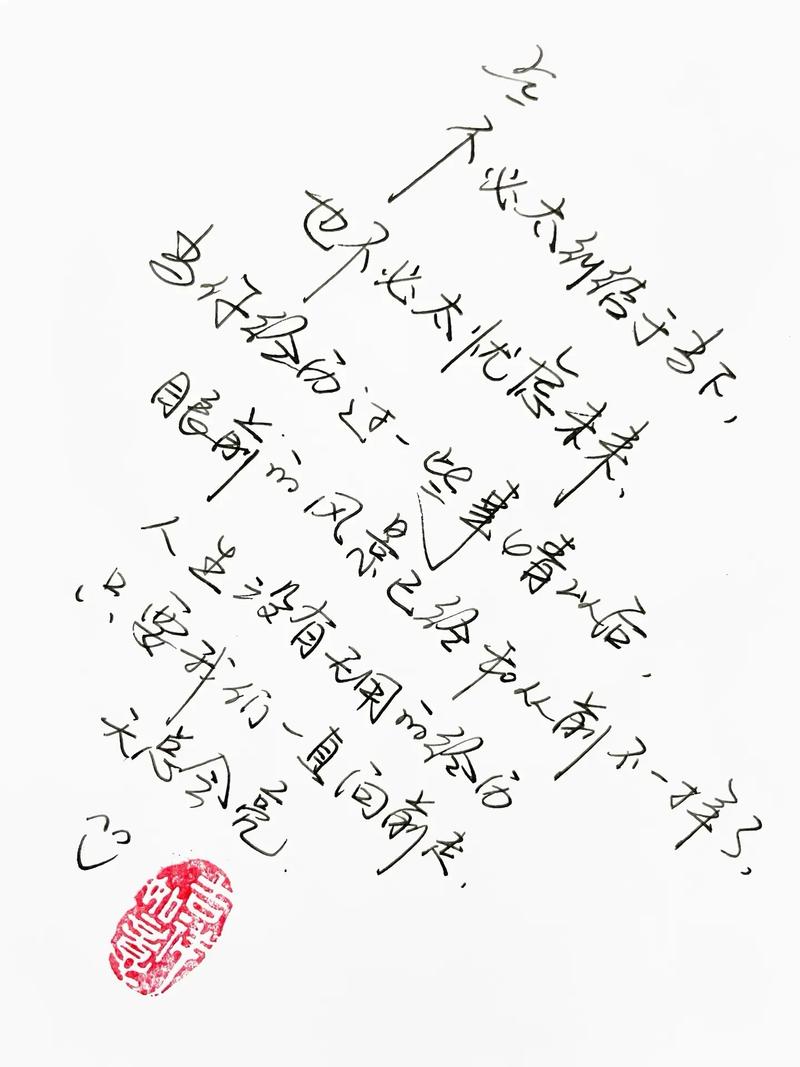 不必太纠结于当下,
也不必太忧虑未来,
当你经历过一些事情以后,
眼前的风景已经和从前不一样了,
人生没有无用的经历
只要我们一直向前走,
天总会亮.
吉祥如意